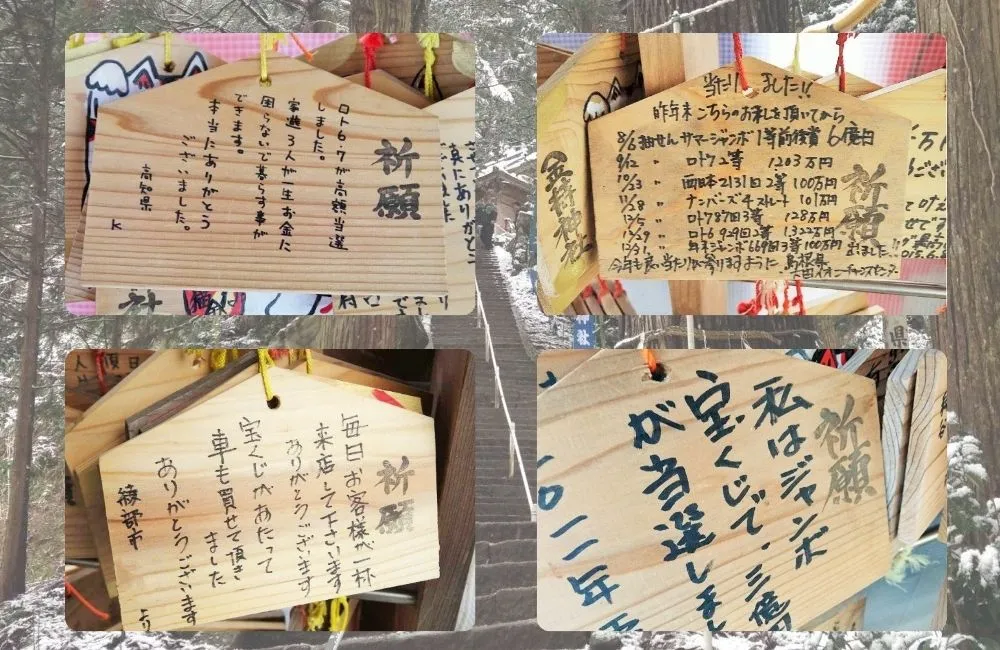 祈願
ロト6・7が高額当選
しました。
家族3人が一生お金に
困らないで暮らす事が
できます。
本当にありがとう
ございました。
高知県
K
当たりました!!
昨年末こちらのお札を頂いてから
8/6抽せんサマージャンボ1等前後賞 6億円
9/12 〃 ロト7 2等 1203万円
10/23 〃 西日本2131回2等 100万円
11/28 〃 ナンバーズ4ストレート 101万円
12/5 〃 ロト7 87回3等 128万円
12/29 〃 ロト6 929回2等 1,322万円
12/31 〃 年末ジャンボ669回3等100万円 出ました
今年も良い当たりが寄りますように 島根県
祈願
金持神社
祈願
毎日お客様が一杯
来店して下さいます
ありがとうございます
宝くじがあたって
車も買せて頂き
ました
ありがとうございます
綾部市
より
祈願
私はジャンボ
宝くじで、三億
が当選しまし